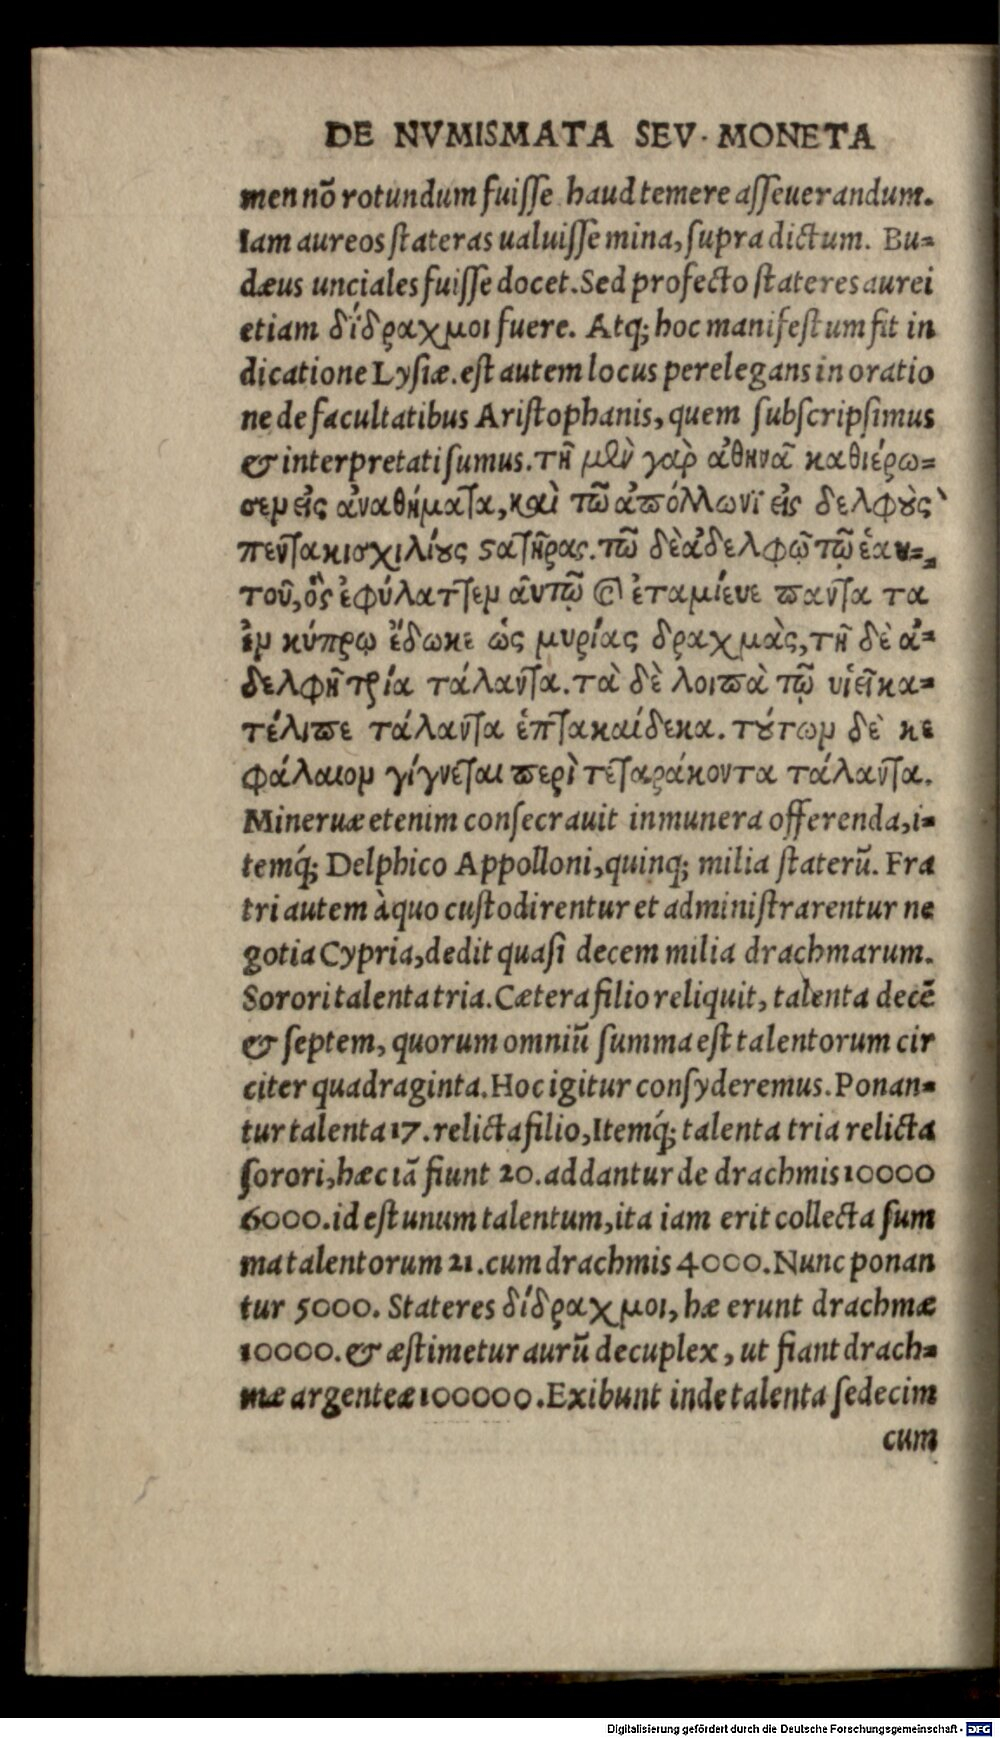 DE NVMISMATA SEV· MONETA
men nō rotundum fuiſſe haud temere aſſeuerandum.
Iam aureos ſtateras ualuiſſe mina, ſupra dictum. Bu-
dæus unciales fuiſſe docet. Sed profecto ſtateres aurei
etiam δίδραχμοι fuere. Atq; hoc manifeſtum fit in
dicatione Lyſiæ. eſt autem locus perelegans in oratio
ne de facultatibus Ariſtophanis, quem ſubſcripſimus
& interpretati ſumus. τῆ μὲν γὰρ ἀθηνᾶ καθιέρω-
σεμ εἰς ἀναθήματα, καὶ τῶ ἀπόλλωνϊ εἰς δελφοὺς
πεντακισχιλίους ϛατῆρας. τῶ δὲ ἀδελφῷ τῷ ἑαυ-
τοῦ, ὃς ἐφύλαττεμ ἀυτῷ & ἐταμίευε παντα τα
ἐμ κύπρῳ ἔδωκε ὡς μυρίας δραχμὰς, τῆ δὲ ἀ-
δελφῆ τρία τάλαντα. τὰ δὲ λοιπὰ τῷ υἱεῖ κα-
τέλιπε τάλαντα ἑπτακαίδεκα. τούτωμ δὲ κε
φάλαιομ γίγνεται περὶ τεταράκοντα τάλαντα.
Mineruæ etenim conſecrauit in munera offerenda, i-
temq́; Delphico Appolloni, quinq; milia ſtaterū. Fra
tri autem à quo cuſtodirentur et adminiſtrarentur ne
gotia Cypria, dedit quaſi decem milia drachmarum.
Sorori talenta tria. Cætera filio reliquit, talenta decē
& ſeptem, quorum omniū ſumma eſt talentorum cir
citer quadraginta. Hoc igitur conſyderemus. Ponan-
tur talenta 17. relicta filio, Itemq́; talenta tria relicta
ſorori, hæc iā fiunt 20. addantur de drachmis 10000
6000. id eſt unum talentum, ita iam erit collecta ſum
ma talentorum 21. cum drachmis 4000. Nunc ponan
tur 5000. Stateres δίδραχμοι, hæ erunt drachmæ
10000. & æſtimetur aurū decuplex, ut fiant drach-
mæ argenteæ 100000. Exibunt inde talenta ſedecim
cum
Digitalisierung gefördert durch die Deutsche Forschungsgemeinschaft - DFG